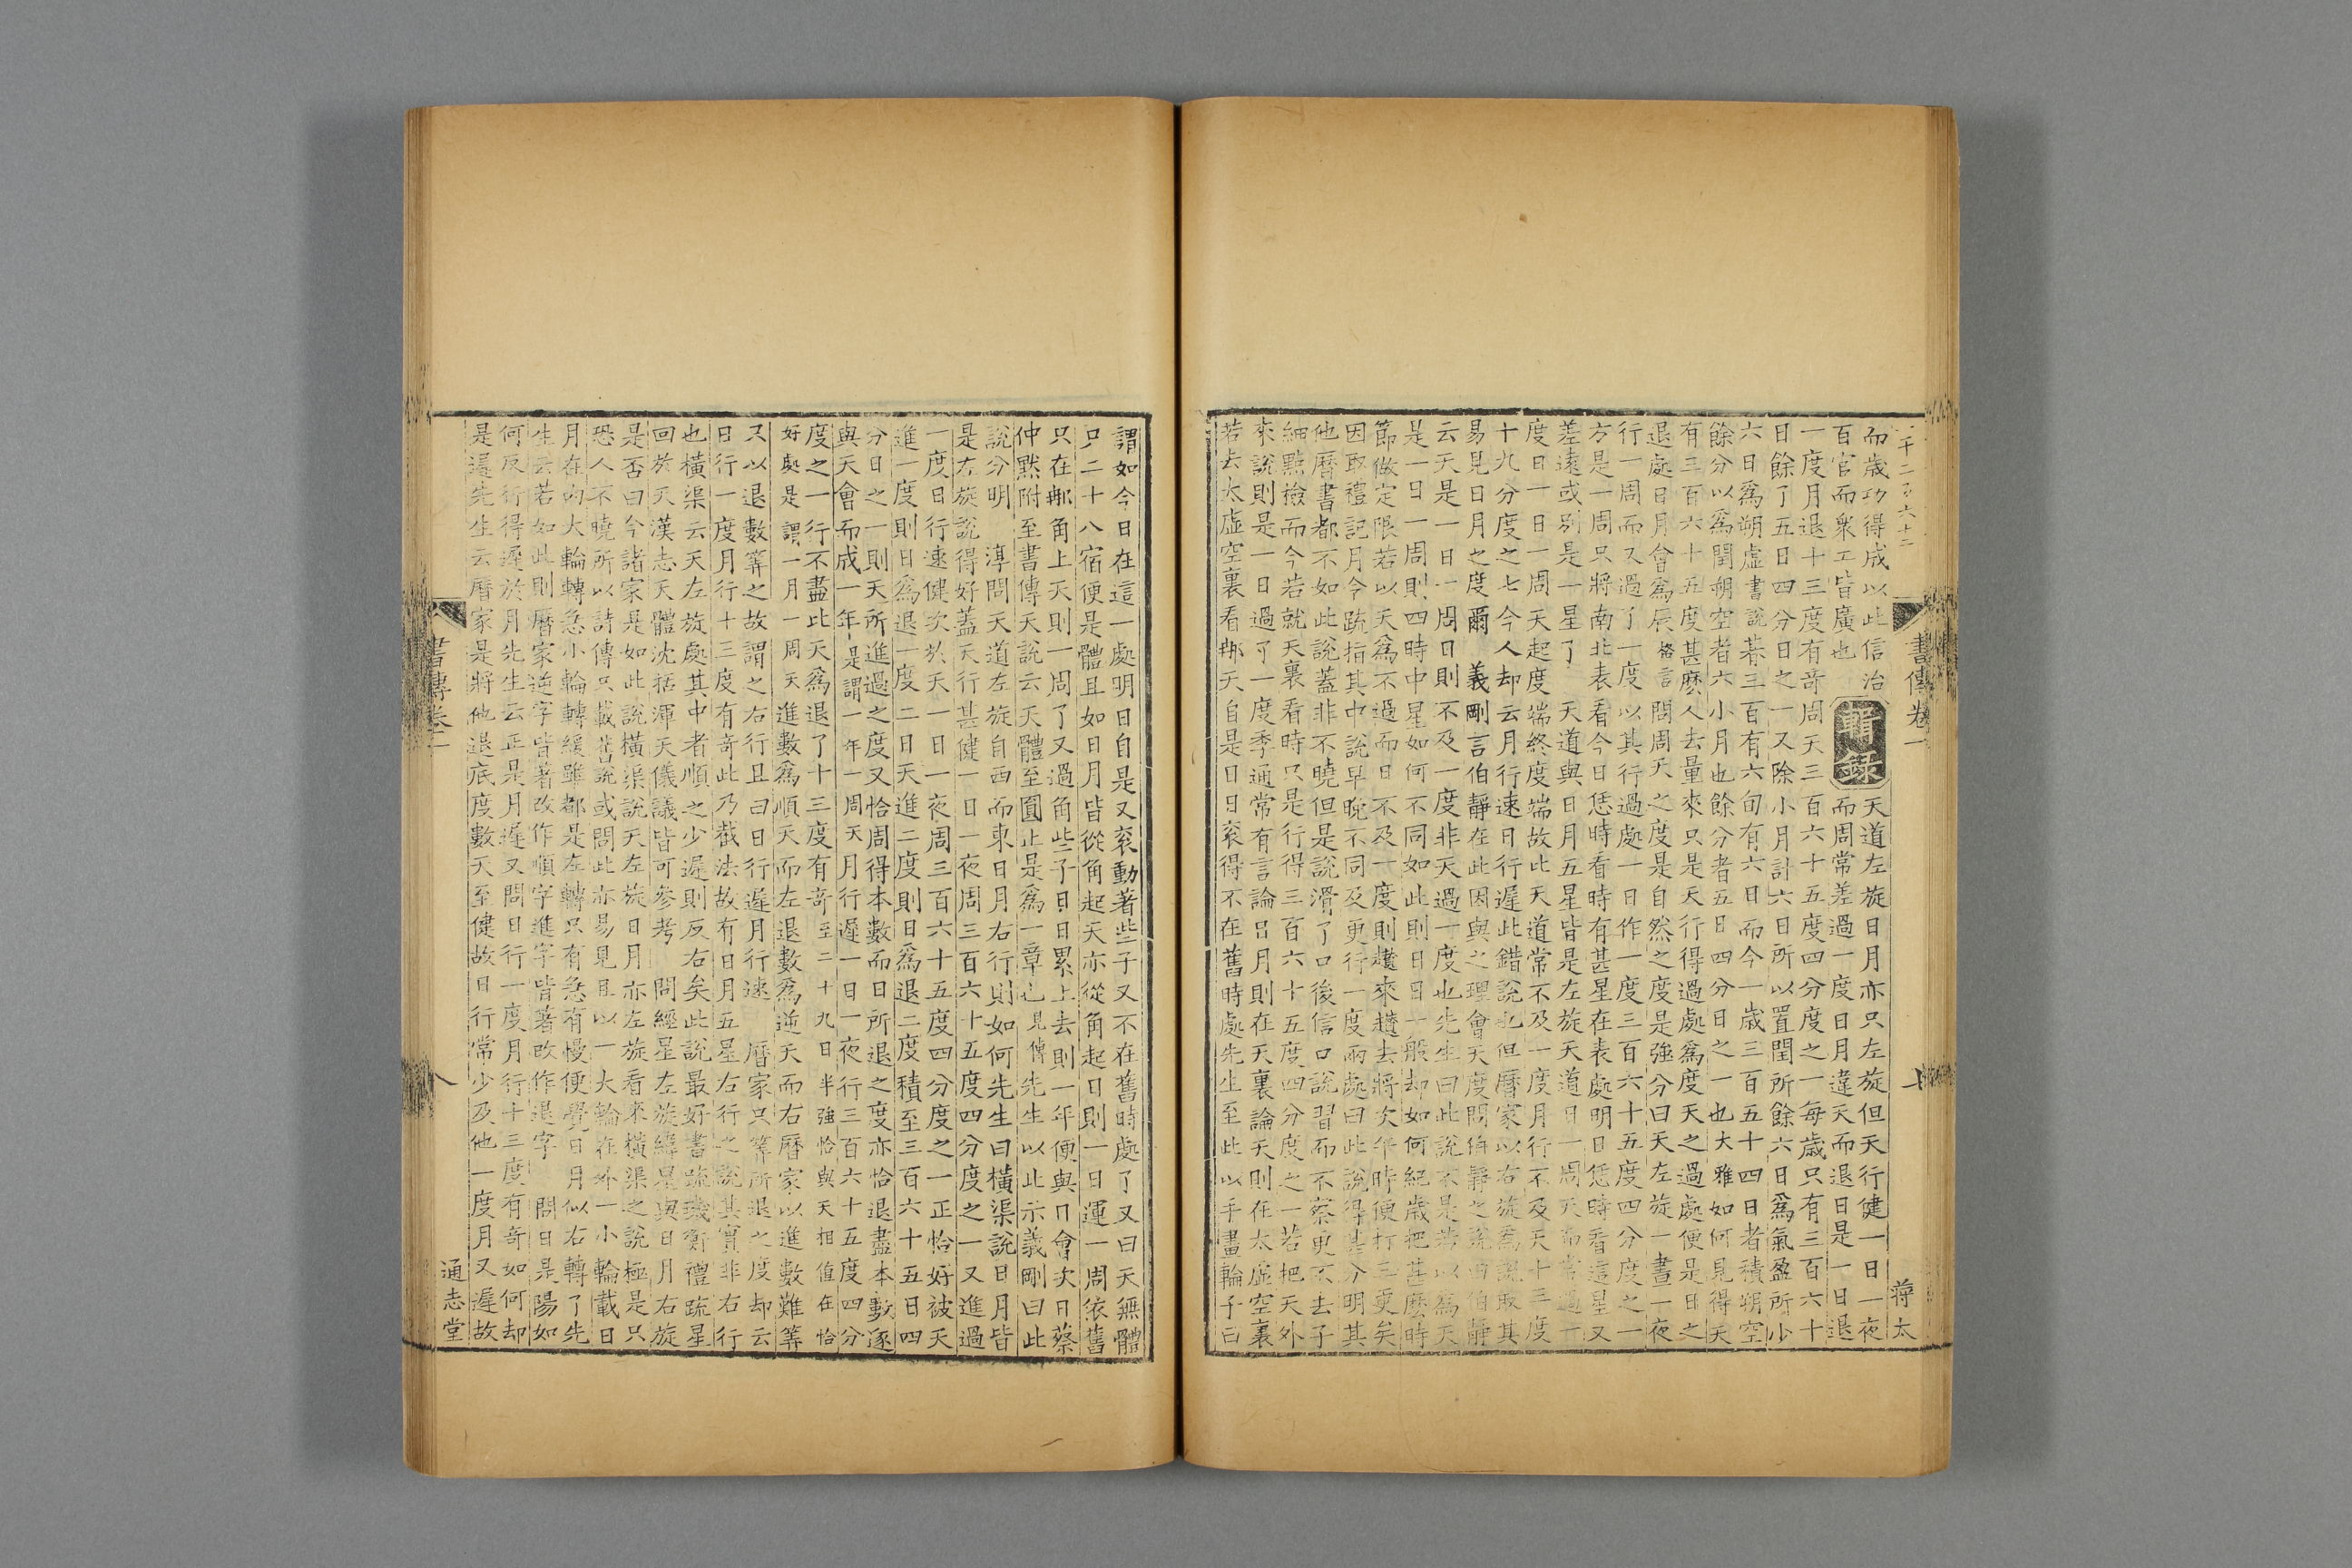 書傳卷一
蔣太
而歲功得成以此信治
百官而衆工皆廣也
輯錄
天道左旋日月亦只左旋但天行健一日一夜
而周常差過一度日月違天而退日是一日退
一度月退十三度有竒周天三百六十五度四分度之一每歲只有三百六十
日餘了五日四分日之一又除小月計六日所以置閏所餘六日爲氣盈所少
六日爲朔虛書說朞三百有六旬有六日而今一歲三百五十四日者積朔空
餘分以爲閏朔空者六小月也餘分者五日四分日之一也大雅如何見得天
有三百六十五度甚麽人去量來只是天行得過處爲度天之過處便是日之
退處日月會爲辰格言問周天之度是自然之度是強分曰天左旋一晝一夜
行一周而又過了一度以其行過處一日作一度三百六十五度四分度之一
方是一周只將南北表看今日恁時看時有甚星在表處明日恁時看這星又
差遠或別是一星了 天道與日月五星皆是左旋天道日一周天而常過一
度日一日一周天起度端終度端故此天道常不及一度月行不及天十三度
十九分度之七今人却云月行速日行遲此錯說也但曆家以右旋爲說取其
易見日月之度爾 義剛言伯靜在此因與之理會天度問伯靜之說曰伯靜
云天是一日一周日則不及一度非天過一度也先生曰此說不是若以爲天
是一日一周則四時中星如何不同如此則日日一般却如何紀歲把甚麽時
節做定限若以天爲不過而日不及一度則趲來趲去將次午時便打三更矣
因取禮記月令疏指其中說早晚不同及更行一度兩處曰此說得甚分明其
他曆書都不如此說蓋非不曉但是說滑了口後信口說習而不察更不去子
細點撿而今若就天裏看時只是行得三百六十五度四分度之一若把天外
來說則是一日過了一度季通常有言論日月則在天裏論天則在太虛空裏
若去太虛空裏看那天自是日日衮得不在舊時處先生至此以手畫輪子曰
謂如今日在這一處明日自是又衮動著些子又不在舊時處了又曰天無體
只二十八宿便是體且如日月皆從角起天亦從角起日則一日運一周依舊
只在那角上天則一周了又過角些子日日累上去則一年便與日會次日蔡
仲默附至書傳天說云天體至圓止是爲一章已見傳先生以此示義剛曰此
說分明 淳問天道左旋自西而東日月右行則如何先生曰橫渠說日月皆
是左旋說得好蓋天行甚健一日一夜周三百六十五度四分度之一又進過
一度日行速健次於天一日一夜周三百六十五度四分度之一正恰好被天
進一度則日爲退一度二日天進二度則日爲退二度積至三百六十五日四
分日之一則天所進過之度又恰周得本數而日所退之度亦恰退盡本數遂
與天會而成一年是謂一年一周天月行遲一日一夜行三百六十五度四分
度之一行不盡比天爲退了十三度有竒至二十九日半強恰與天相值在恰
好處是謂一月一周天進數爲順天而左退數爲逆天而右曆家以進數難筭
只以退數筭之故謂之右行且曰日行遲月行速 曆家只筭所退之度却云
日行一度月行十三度有竒此乃截法故有日月五星右行之說其實非右行
也橫渠云天左旋處其中者順之少遲則反右矣此說最好書疏璣衡禮疏星
回於天漢志天體沈括渾天儀議皆可參考 問經星左旋緯星與日月右旋
是否曰今諸家是如此說橫渠說天左旋日月亦左旋看來橫渠之說極是只
恐人不曉所以詩傳只載舊說或問此亦易見且以一大輪在外一小輪載日
月在內大輪轉急小輪轉緩雖都是左轉只有急有慢便覺日月似右轉了先
生云若如此則曆家逆字皆著改作順字進字皆著改作退字 問日是陽如
何反行得遲於月先生云正是月遲又問日行一度月行十三度有竒如何却
是遲先生云曆家是將他退底度數天至健故日行常少及他一度月又遲故
書傳卷一
八
通志堂